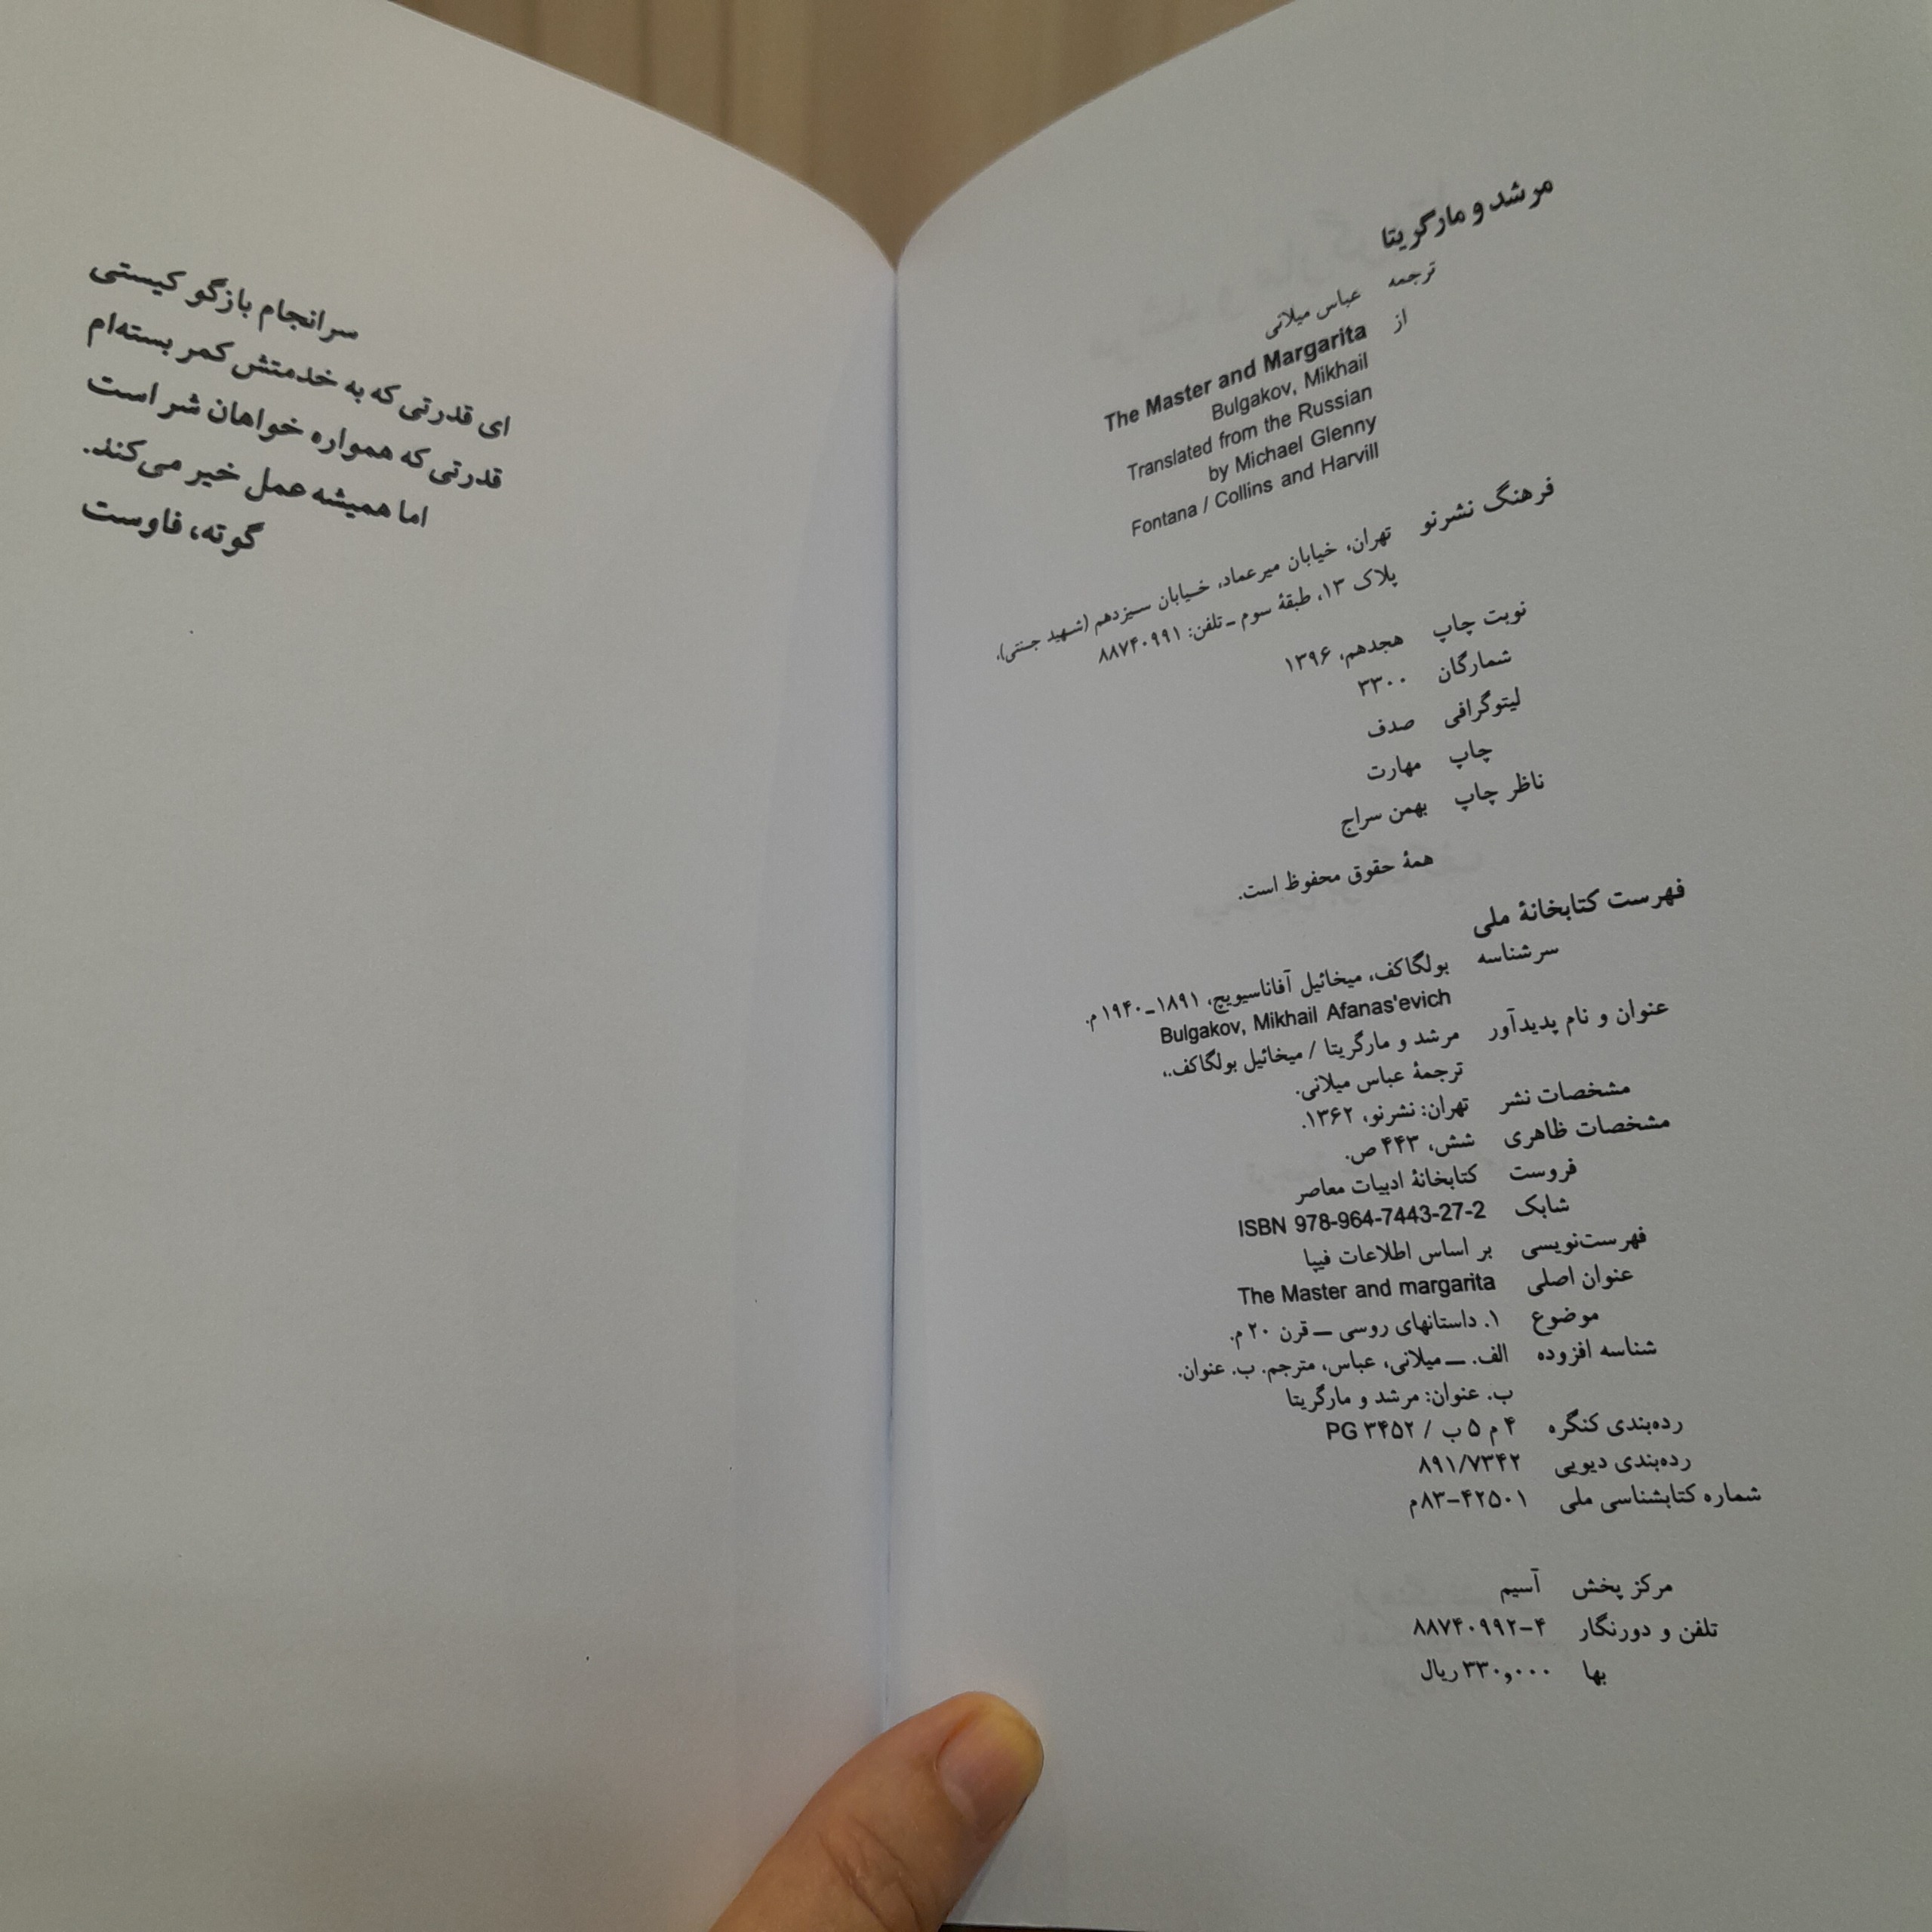 مرشد و مارگریتا
ترجمه عباس میلانی
از The Master and Margarita
Bulgakov, Mikhail
Translated from the Russian
by Michael Glenny
Fontana / Collins and Harvill
فرهنگ نشرنو تهران، خیابان میرعماد، خیابان سیزدهم (شهید جنتی)،
پلاک ۱۳، طبقهٔ سوم ـ تلفن: ۸۸۷۴۰۹۹۱
نوبت چاپ هجدهم، ۱۳۹۶
شمارگان ۳۳۰۰
لیتوگرافی صدف
چاپ مهارت
ناظر چاپ بهمن سراج
همهٔ حقوق محفوظ است.
فهرست کتابخانهٔ ملی
سرشناسه بولگاکف، میخائیل آفاناسیویچ، ۱۸۹۱ـ۱۹۴۰ م.
Bulgakov, Mikhail Afanas'evich
عنوان و نام پدیدآور مرشد و مارگریتا / میخائیل بولگاکف.،
ترجمهٔ عباس میلانی.
مشخصات نشر تهران: نشرنو، ۱۳۶۲.
مشخصات ظاهری شش، ۴۴۳ ص.
فروست کتابخانهٔ ادبیات معاصر
شابک ISBN 978-964-7443-27-2
فهرست‌نویسی بر اساس اطلاعات فیپا
عنوان اصلی The Master and margarita
موضوع ۱. داستانهای روسی ـــ قرن ۲۰ م.
شناسه افزوده الف. ـــ میلانی، عباس، مترجم. ب. عنوان.
ب. عنوان: مرشد و مارگریتا
رده‌بندی کنگره ۴ م ۵ ب / PG ۳۴۵۲
رده‌بندی دیویی ۸۹۱/۷۳۴۲
شماره کتابشناسی ملی ۴۲۵۰۱-۸۳م
مرکز پخش آسیم
تلفن و دورنگار ۸۸۷۴۰۹۹۲-۴
بها ۳۳۰,۰۰۰ ریال
سرانجام بازگو کیستی
ای قدرتی که به خدمتش کمر بسته‌ام
قدرتی که همواره خواهان شر است
اما همیشه عمل خیر می‌کند.
گوته، فاوست